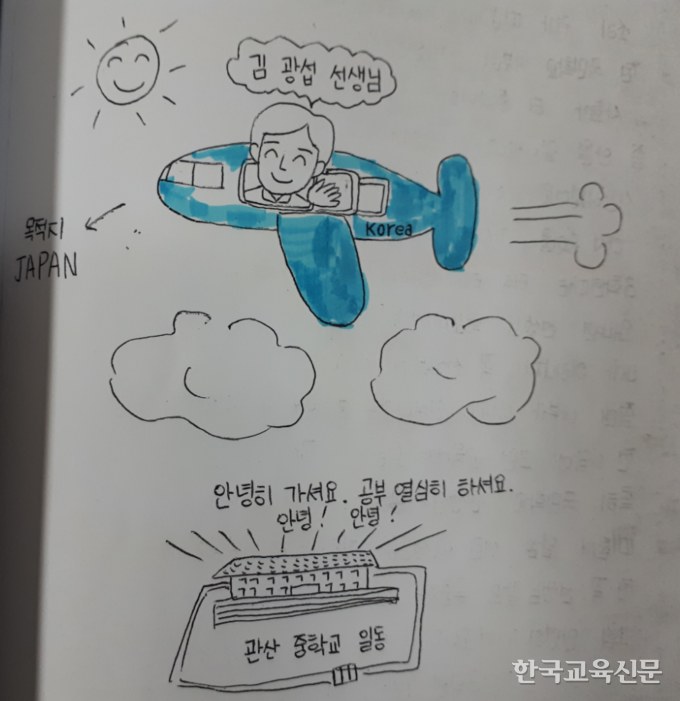 김 광섭 선생님
Korea
목적지
JAPAN
안녕히 가셔요. 공부 열심히 하셔요.
안녕! 안녕!
관산 중학교 일동
한국교육신문